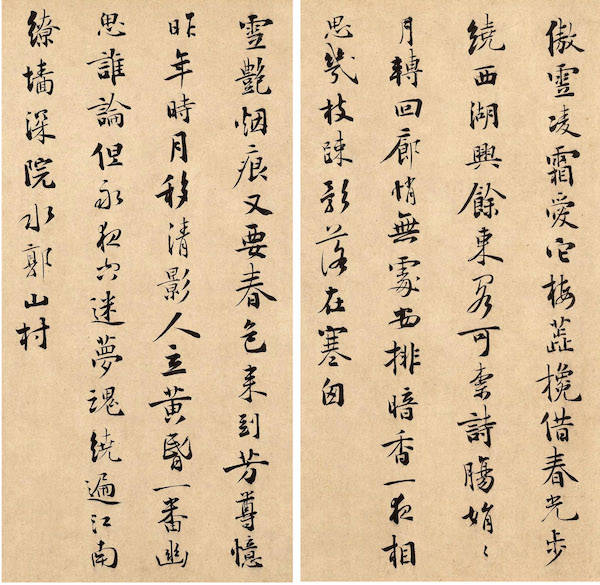 傲雪凌霜愛它梅蕋攙借春光步
繞西湖興餘東閣可柰詩腸娟〻
月轉回廊悄無處安排暗香一夜相
思幾枝踈影落在寒窗
雪艷烟痕又要春色来到芳尊憶
昨年時月移清影人立黄昏一番幽
思誰論但永夜空迷夢魂繞遍江南
繚墻深院水郭山村